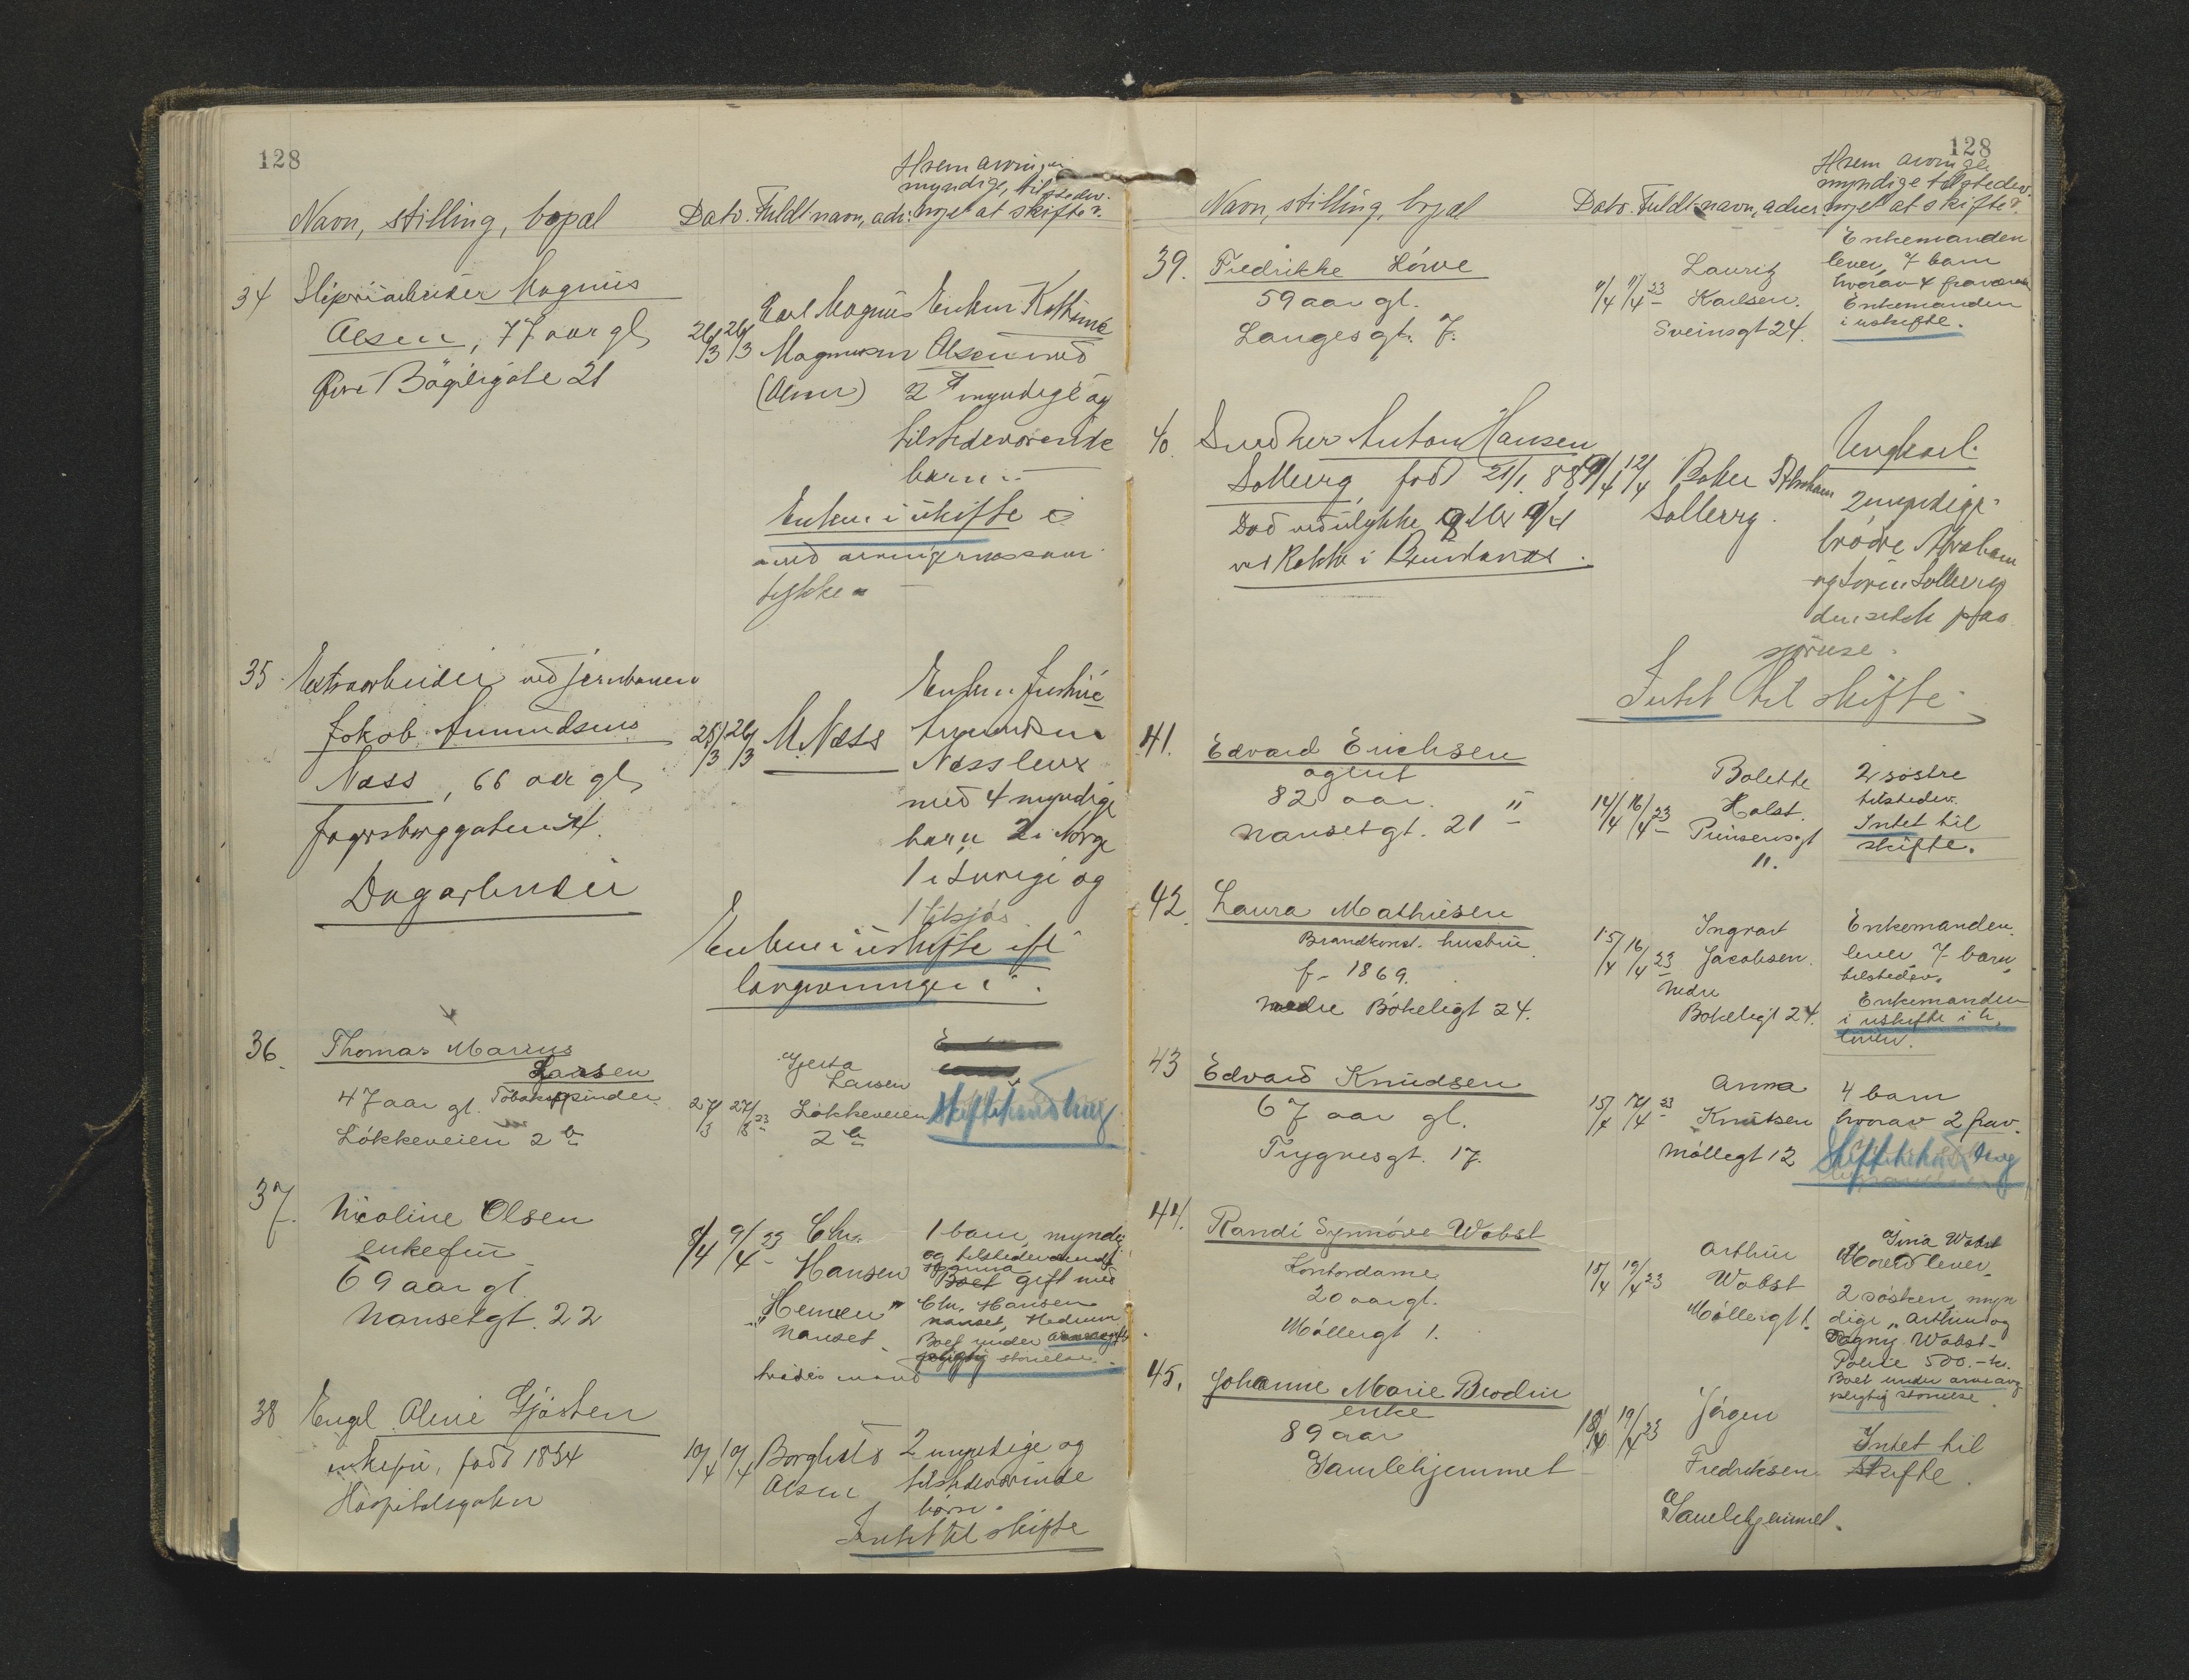 128
Hvem arvinger
myndige, tilstedev.
Navn, stilling, bopæl Dato. Fuldt navn, adr. noget at skifte?
34 Slipriarbeider Magnus
Olsen, 77 aar gl,
Øvre Bøgeligate 21
26/3 26/3
Carl Magnus
Magnussen
(Olsen)
Enken Kathinne
Olsen med
2 myndige og
tilstedeværende
barn.
Enken i uskifte
med arvingernes sam
tykke
35. Extraarbeider ved jernbanen
Jakob Amundsens
Næss, 66 aar gl,
Dagarbeider
25/3 26/3 M. Næss
Enken
Amundsen
Næss lever
med 4 myndige
barn 2 i Norge
1 i Sverige og
1 tilsjøs
Enken i uskifte ifl
lovgivningen.
36. Thomas Marius
Larsen
47 aar gl. Tobakspinder.
Løkkeveien 2 b
27/3 27/3 23
Larsen
Løkkeveien
2 b
Skiftebehandling
37. Nicoline Olsen
enkefru
69 aar gl.
Nansetgt. 22
8/4 9/4 23 Chr.
Hansen
"Hemen"
Nanset
1 barn, myndig
og tilstedeværende
Hanna
Boet gift med
Chr. Hansen
Nanset, Hedrum
Boet under arveavgifts
pligtig størrelse.
38 Engel Oline Gjøsten
enkefru, født 1834
Hospitalsgaten
10/4 10/4 Borghild
Olsen
2 myndige og
tilstedeværende
børn.
Intet til skifte
128
Hvem arvinge
myndige tilstedev.
Navn, stilling, bopæl Dato. Fuldt navn, adr. noget at skifte?
39. Fredrikke Lørve
59 aar gl.
Langesgt. 7.
11/4 11/4 23
Lauritz
Karlsen.
Sveinsgt 24.
Enkemanden
lever, 7 barn
hvorav 4 fraværende
Enkemanden
i uskifte.
40. Snedker Anton Hansen
Solberg, født 21/1 88
Død ved ulykke
9/4 12/4 Baker Abraham
Solberg.
Ungkarl.
2 myndige
brødre Abraham
og Sørin Solberg
den sidste paa
sjøreise.
Intet til skifte
41. Edvard Erichsen
agent
82 aar.
Nansetgt. 21
14/4 16/4 23
Bolette
Holst.
Prinsensgt
11.
2 søstre
tilstedev.
Intet til
skifte.
42. Laura Mathisen
Brandkonst. hustru
f. 1869.
Nedre Bøkeligt 24.
15/4 16/4 23
Ingvart
Jacobsen.
Nedre
Bøkeligt 24.
Enkemanden
lever, 7 barn,
tilstedev.
Enkemanden
i uskifte i h.
loven.
43 Edvard Knudsen
67 aar gl.
Trygvesgt. 17.
15/4 17/4 23
Anna
Knutsen
Møllegt 12
4 barn
hvorav 2 frav.
Skiftebehandling
44. Randi Synnøve Wobst
Kontordame
20 aar gl.
Møllergt 1.
18/4 19/4 23
Arthur
Wobst
Møllergt 1.
Gina Wobst
Mored lever
2 søsken, myn
dige, Arthur og
Dagny Wobst
Police 500.- kr.
Boet under arveavg
pligtig størrelse.
45. Johanne Marie Brodin
enke
89 aar
Gamlehjemmet
18/4 19/4 23
Jørgen
Fredriksen
Gamlehjemmet.
Intet til
skifte.